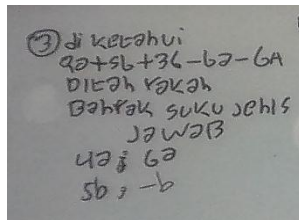 ③ diketahui
9a+5b+36-6a-6A
Ditanyakan
Banyak suku Jenis
JawaB
4a; 6a
5b, -b